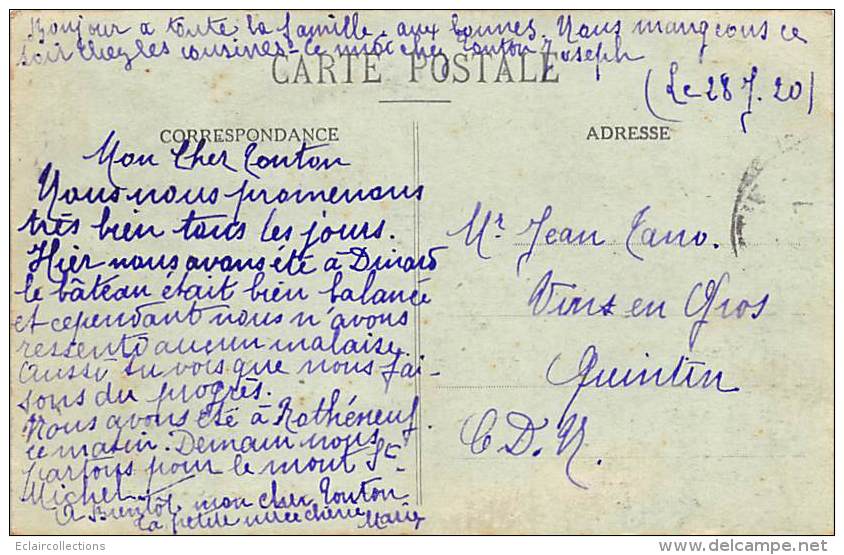 Bonjour a toute la famille, aux bonnes. Nous mangeons ce
soir chez les cousines - ce midi chez Tonton Joseph
CARTE POSTALE
(Le 28 J. 20)
CORRESPONDANCE
Mon Cher Tonton
Nous nous promenons
très bien tous les jours.
Hier nous avons été à Dinard
le bâteau était bien balancé
et cependant nous n'avons
ressenti aucun malaise.
Aussi tu vois que nous fai-
sons du progrès.
Nous avons été à Rothéneuf
ce matin. Demain nous
partons pour le mont St
Michel.
A Bientôt, mon cher Tonton
ta petite nièce chérie Marie
ADRESSE
Mr Jean Tano.
Vins en Gros
Quintin
C D. N.
Eclaircollections
www.delcampe.net